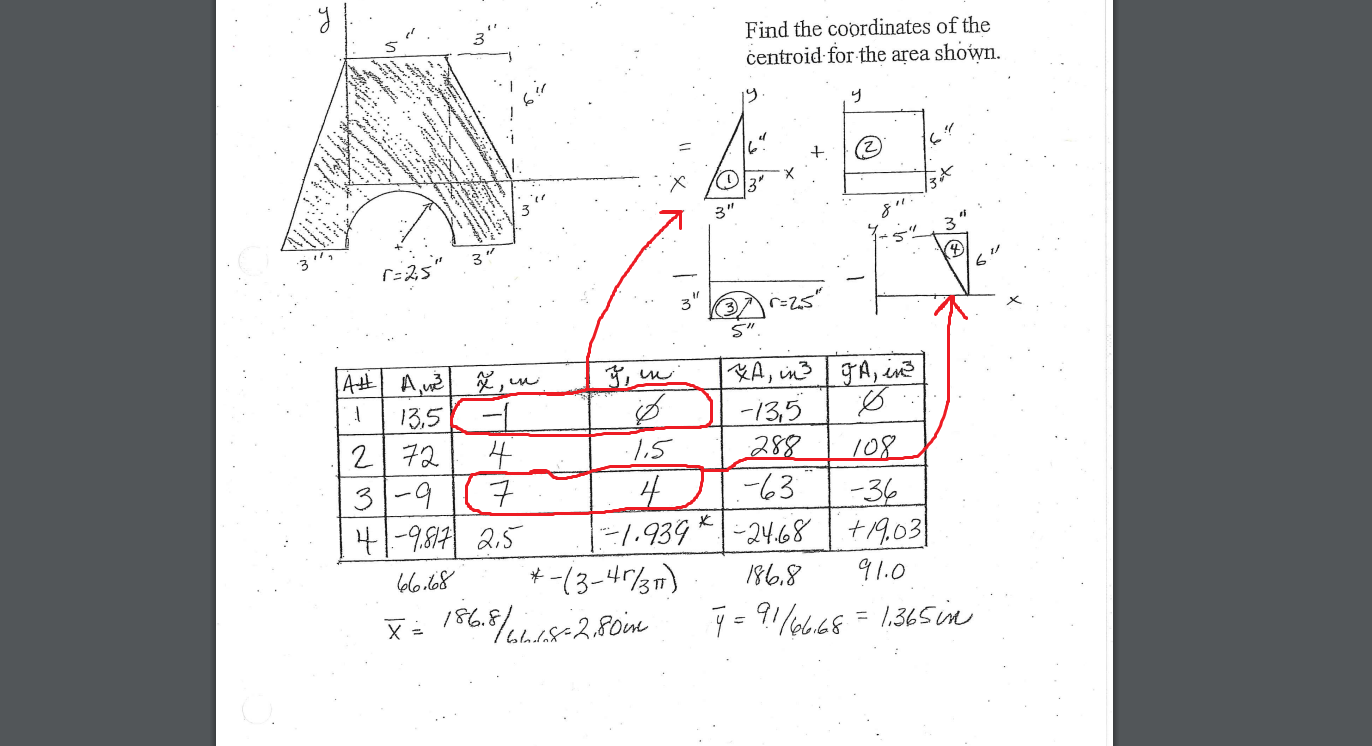 y
5" 3"
Find the coordinates of the
centroid for the area shown.
6"
x
3"
3" r=2.5" 3"
= y 6" ① 3" x 3"
+ y ② 6" x 3" 8"
- 3" ③ r=2.5" 5"
- y 5" 3" ④ 6" x
A# A, in³ x̃, in ỹ, in x̃A, in³ ỹA, in³
1 13,5 -1 ∅ -13,5 ∅
2 72 4 1.5 288 108
3 -9 7 4 -63 -36
4 -9.817 2.5 -1.939 * -24.68 +19.03
66.68 * -(3-4r/3π) 186.8 91.0
x̄ = 186.8/66.68=2.80in ȳ = 91/66.68 = 1.365in